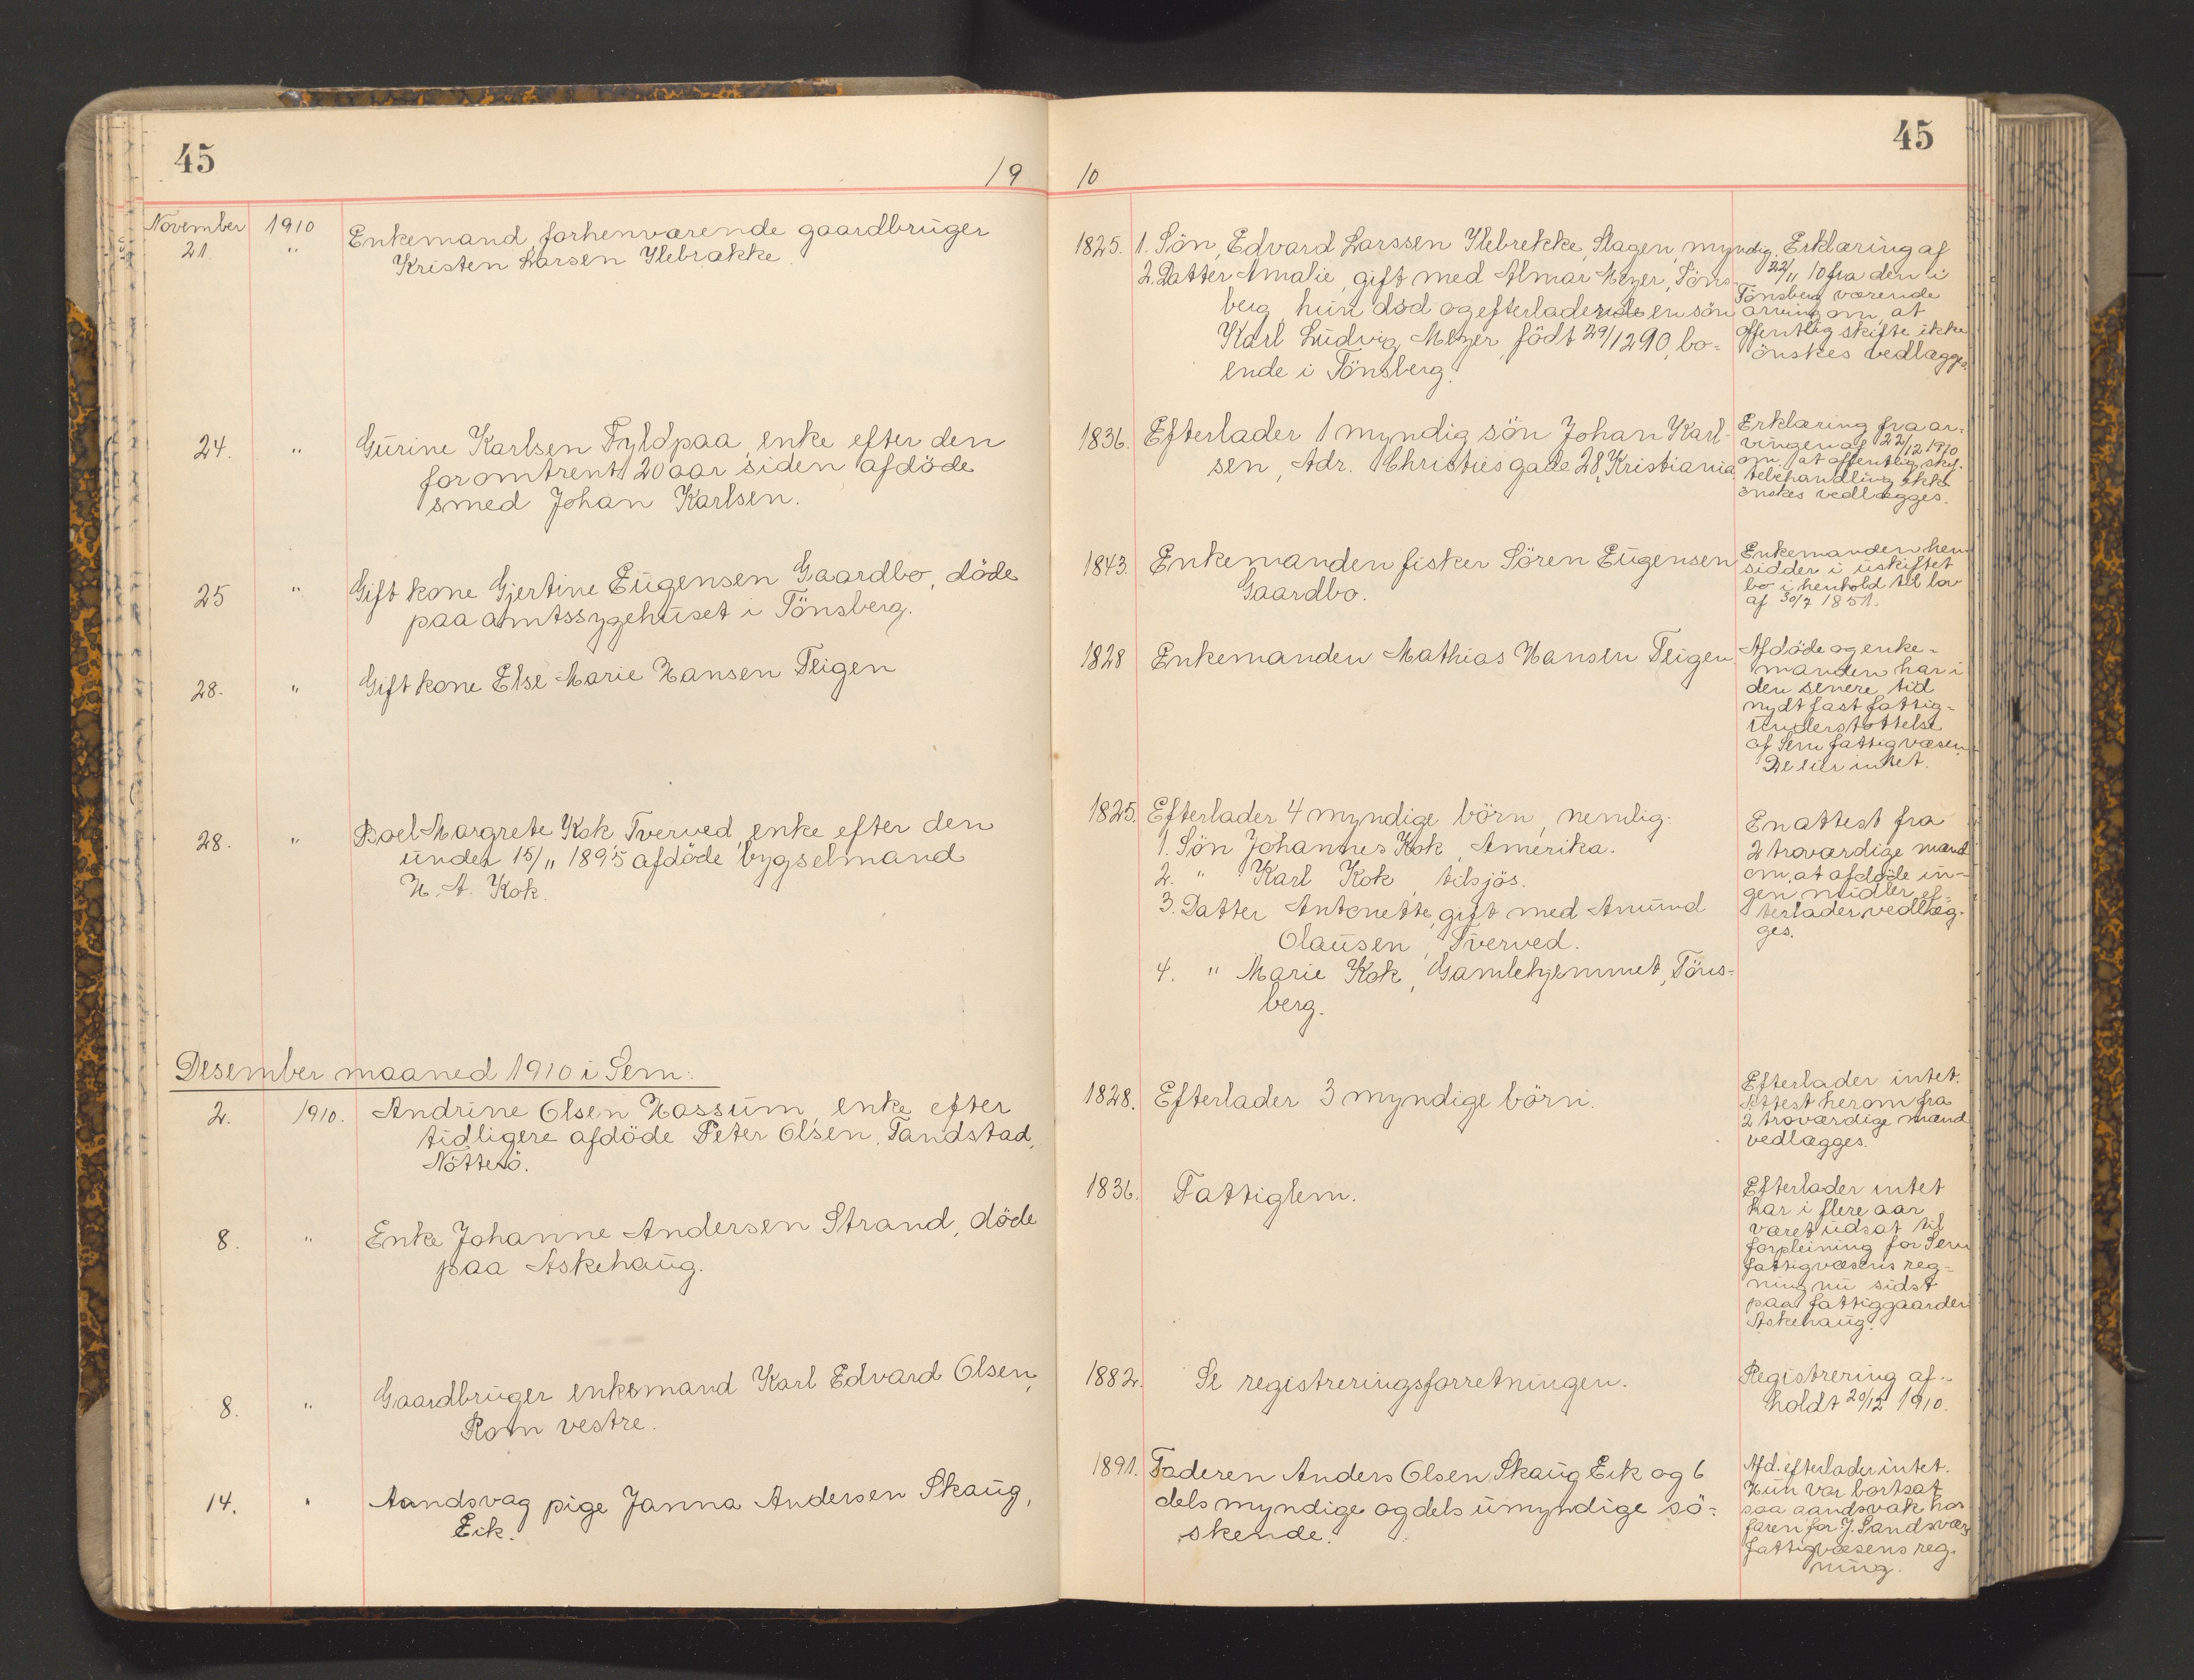 45
19
November 1910
21. "
Enkemand, forhenværende gaardbruger
Kristen Larsen Ilebrække.
24. "
Gurine Karlsen Fyldpaa, enke efter den
for omtrent 20 aar siden afdöde
smed Johan Karlsen.
25 "
Gift kone Gjertine Eugensen Gaardbo, döde
paa amtssygehuset i Tönsberg.
28. "
Gift kone Else Marie Hansen Teigen
28. "
Boel Margrete Kok Tverved, enke efter den
under 15/11 1895 afdöde bygselmand
H. A. Kok.
Desember maaned 1910 i Sem:
2. 1910.
Andrine Olsen Hassum, enke efter
tidligere afdöde Peter Olsen, Tandstad,
Nötterö.
8. "
Enke Johanne Andersen Strand, döde
paa Askehaug.
8. "
Gaardbruger enkemand Karl Edvard Olsen,
Rom vestre.
14. "
Aandsvag pige Janna Andersen Skaug,
Eik.
45
10
1825. 1. Sön, Edvard Larssen Ilebrekke, Slagen, myndig.
2. Datter Amalie, gift med Almar Meyer, Töns-
berg, hun död og efterladende en sön
Karl Ludvig Meyer, födt 29/12 90, bo-
ende i Tönsberg.
Erklæring af
22/11 10 fra den i
Tönsberg værende
arving om, at
offentlig skifte ikke
önskes vedlægges.
1836. Efterlader 1 myndig sön Johan Karl-
sen, Adr. Christies gade 28, Kristiania.
Erklæring fra ar-
vingen af 22/12 1910
om, at offentlig skif-
tebehandling ikke
önskes vedlægges.
1843. Enkemanden fisker Sören Eugensen
Gaardbo.
Enkemanden hen-
sidder i uskiftet
bo i henhold til lov
af 30/7 1851.
1828 Enkemanden Mathias Hansen Teigen.
Afdöde og enke-
manden har i
den senere tid
nydt fast fattig-
understöttelse
af Sem fattigvæsen.
De eier intet.
1825. Efterlader 4 myndige börn, nemlig:
1. Sön Johannes Kok, Amerika.
2. " Karl Kok, tilsjös.
3. Datter Antonette, gift med Amund
Olausen, Tverved.
4. " Marie Kok, Gamlehjemmet, Töns-
berg.
En attest fra
2 troværdige mænd
om, at afdöde in-
gen midler ef-
terlader vedlæg-
ges.
1828. Efterlader 3 myndige börn.
Efterlader intet.
Attest herom fra
2 troværdige mænd
vedlægges.
1836. Fattiglem.
Efterlader intet
har i flere aar
været udsat til
forpleining for Sem
fattigvæsens reg-
ning nu sidst
paa fattiggaarden
Askehaug.
1882. Se registreringsforretningen.
Registrering af-
holdt 20/12 1910.
1891. Faderen Anders Olsen Skaug Eik og 6
dels myndige og dels umyndige sö-
skende.
Afd. efterlader intet.
Hun var bortsat
saa aandsvak hos
faren for J. Sandsvær
fattigvæsens reg-
ning.